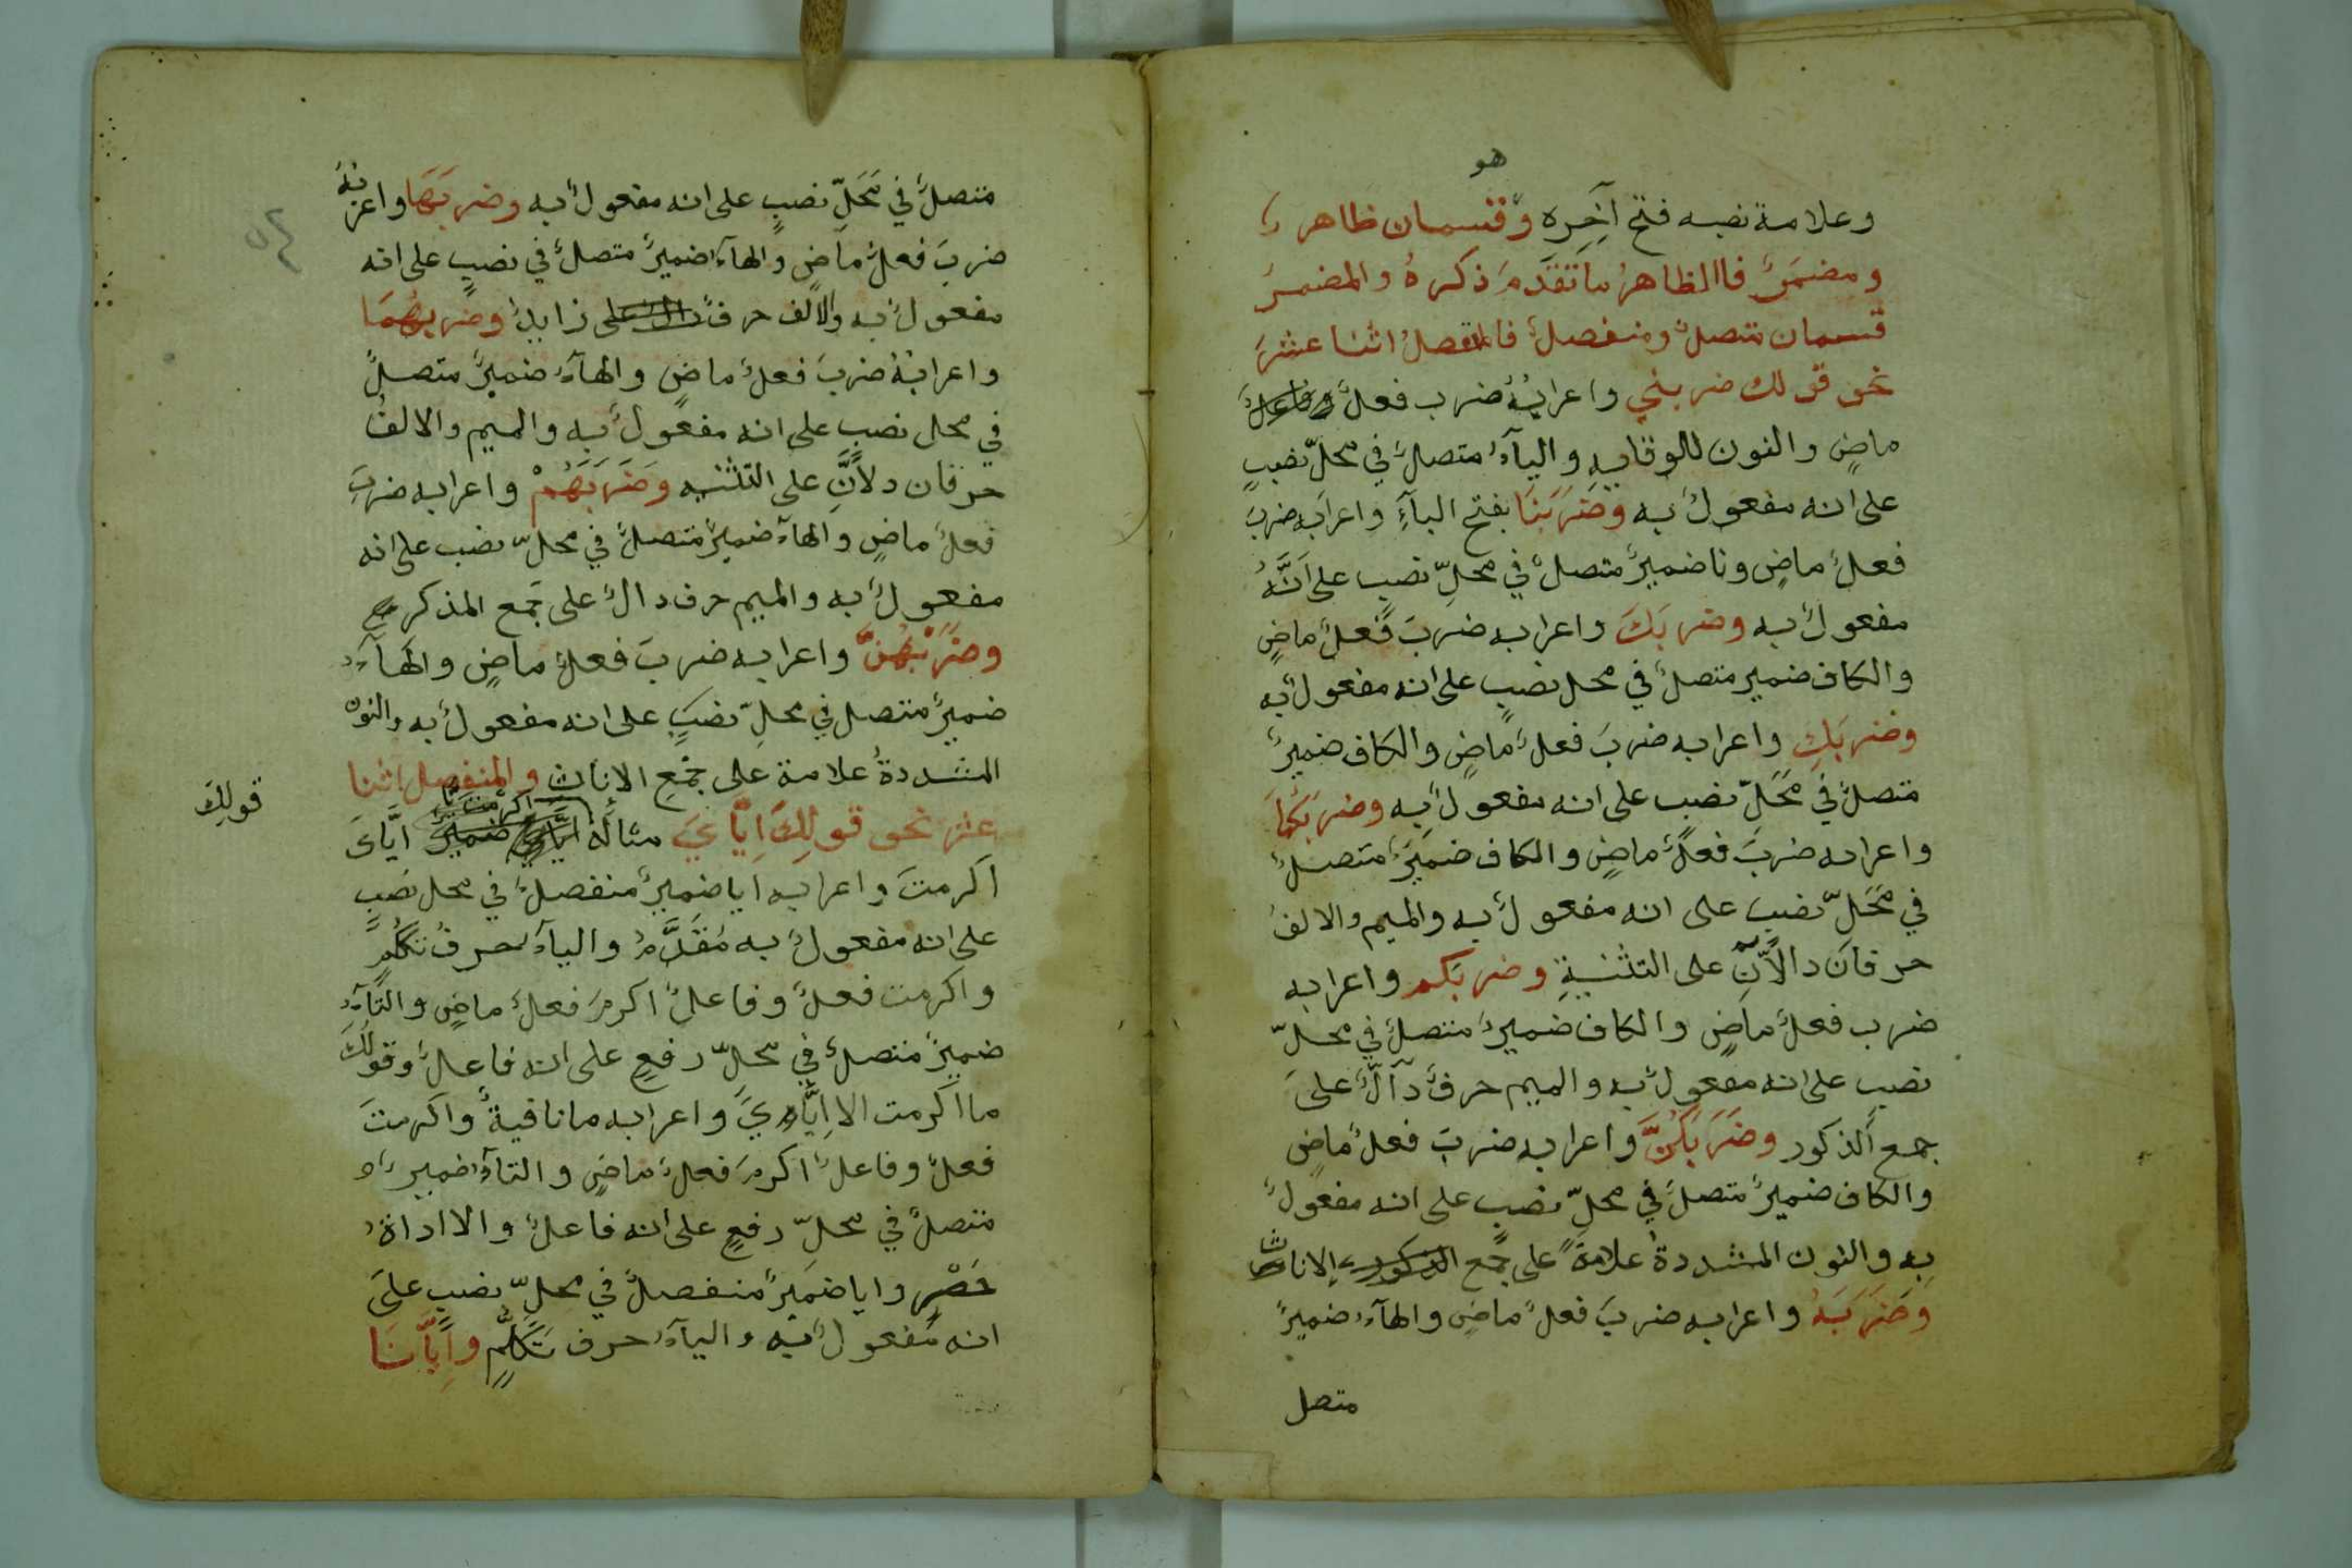 هو
وعلامة نصبه فتح آخِرِه وقسمان ظاهر
ومضمَرٌ فاالظاهرُ ماتَقَدَّمَ ذكرهُ والمضمرُ
قسمان متصلٌ ومنفصلٌ فالمتصلُ اثنا عشرَ
نحو قولك ضربني واعرابُهُ ضرب فعلٌ
ماضٍ والنون للوقايه واليآءُ متصلٌ في محلّ نصبٍ
على انه مفعولٌ به وضَرَبَنَا بفتح البآءِ واعرابه ضربَ
فعلٌ ماضٍ ونا ضميرٌ متصلٌ في محلِّ نصبٍ على اَنَّهُ
مفعولٌ به وضربَكَ واعرابه ضربَ فعلٌ ماضٍ
والكاف ضمير متصلٌ في محل نصبٍ على انه مفعولٌ به
وضربَكِ واعرابه ضربَ فعلٌ ماضٍ والكاف ضميرٌ
متصلٌ في مَحَلّ نصب على انه مفعولٌ به وضربَكُمَا
واعرابه ضربَ فعلٌ ماضٍ والكاف ضميرٌ متصلٌ
في مَحَلّ نصب على انه مفعولٌ به والميم والالفُ
حرفان دالَّانِ على التثنيةِ وضربَكم واعرابه
ضرب فعلٌ ماضٍ والكاف ضميرٌ متصلٌ في محلّ
نصب على انه مفعولٌ به والميم حرفٌ دآلٌّ على
جمع الذكور وضَرَبَكُنَّ واعرابه ضربَ فعلٌ ماضٍ
والكاف ضميرٌ متصلٌ في محلِّ نصبٍ على انه مفعولٌ
بِه والنون المشددةُ علامةٌ على جمع الذكور الاناث
وَضَرَبَهُ واعرابه ضربَ فعلٌ ماضٍ والهآءُ ضميرٌ
متصل
متصلٌ في مَحَلِّ نصبٍ على انه مفعولٌ به وضربَهَا واعرابُهُ
ضربَ فعلٌ ماضٍ والهآءُ ضميرٌ متصلٌ في نصبٍ على انه
مفعولٌ به والالف حرفٌ زايدٌ وضربهُمَا
واعرابُهُ ضربَ فعلٌ ماضٍ والهآءُ ضميرٌ متصلٌ
في محل نصب على انه مفعولٌ به والميم والالفُ
حرفان دلانِّ على التثنيه وَضَرَبَهُمْ واعرابه ضربَ
فعلٌ ماضٍ والهآء ضميرٌ متصلٌ في محلّ نصب على انه
مفعولٌ به والميم حرف دالٌ على جمع المذكر
وضَرَبَهُنَّ واعرابه ضربَ فعلٌ ماضٍ والهآءُ
ضميرٌ متصل في محلِّ نصبٍ على انه مفعولٌ به والنون
المشددةُ علامة على جمعِ الاناث والمنفصل اثنا
عشر نحو قولِكَ اِيَّايَ مثالُهُ ايَّايَ
قولِكَ
اكرمتَ واعرابه ايا ضميرٌ منفصلٌ في محل نصبٍ
على انه مفعولٌ به مُقَدَّمٌ واليآءُ حرفُ تكلُّمٍ
واكرمت فعلٌ وفاعلٌ اكرمَ فعلٌ ماضٍ والتآءُ
ضميرٌ متصلٌ في محلّ رفعٍ على انه فاعلٌ وقولُكَ
ما اكرمت الا اِيَّايَ واعرابه ما نافيةٌ واكرمتَ
فعلٌ وفاعلٌ اكرمَ فعلٌ ماضٍ والتآءُ ضمير
متصلٌ في محلّ رفعٍ على انه فاعلٌ والا اداةُ
حَصْرٍ وايا ضميرٌ منفصلٌ في محلِّ نصبٍ على
انه مفعولٌ به واليآءُ حرف تَكَلُّمٍ وَاِيَّانَا